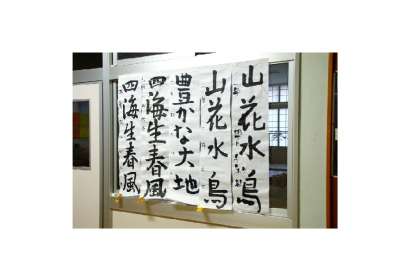 山花水鳥
山花水鳥
豊かな大地
四海生春風
四海生春風